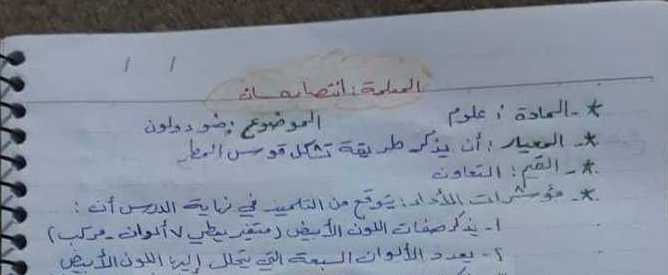 / /
المعلمة : انتصار حسان
*- المادة : علوم الموضوع : ضوء ولون
*- المعيار : أن يذكر طريقة تشكل قوس المطر
*- القيم : التعاون
*- مؤشرات الأداء : يتوقع من التلميذ في نهاية الدرس أن :
١- يذكر صفات اللون الأبيض ( يعطي ٧ ألوان - مركب )
٢- يعدد الألوان السبعة التي يتحلل إليها اللون الأبيض